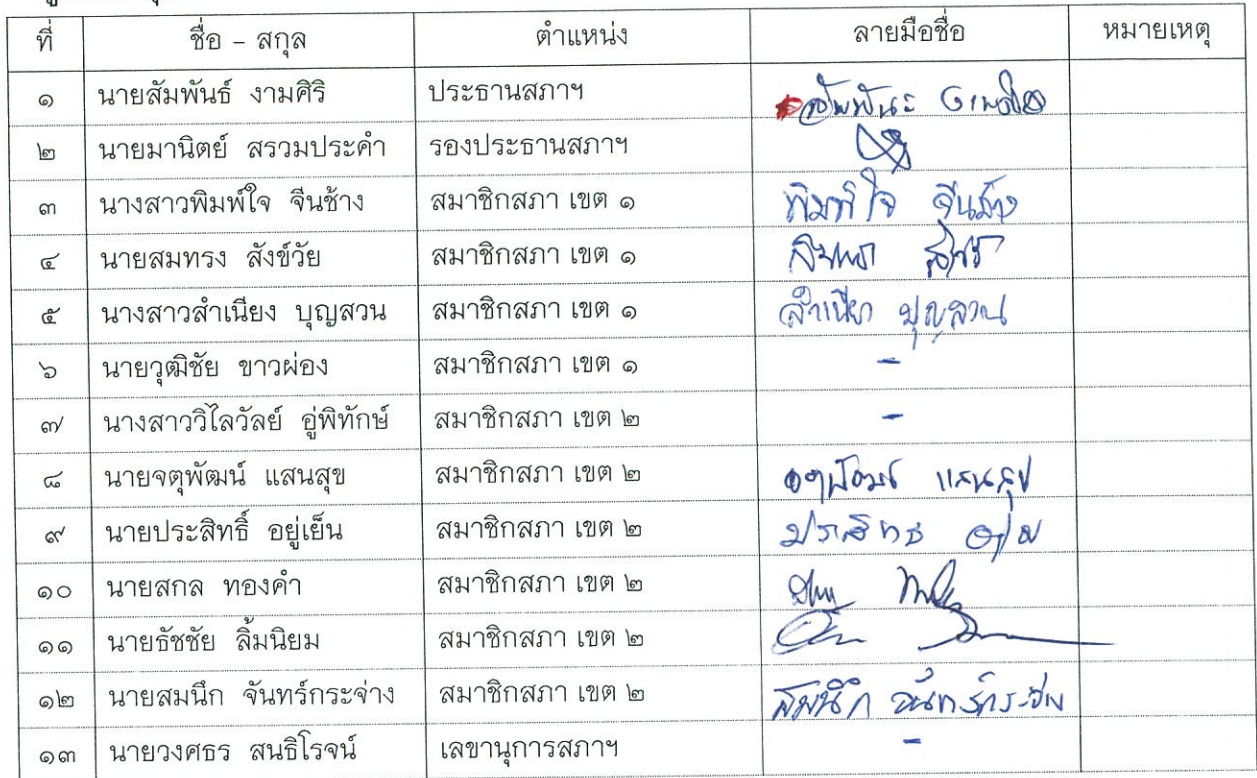 ที่ ชื่อ - สกุล ตำแหน่ง ลายมือชื่อ หมายเหตุ
๑ นายสัมพันธ์ งามศิริ ประธานสภาฯ
๒ นายมานิตย์ สรวมประคำ รองประธานสภาฯ
๓ นางสาวพิมพ์ใจ จีนช้าง สมาชิกสภา เขต ๑ พิมพ์ใจ จีนช้าง
๔ นายสมทรง สังข์วัย สมาชิกสภา เขต ๑
๕ นางสาวสำเนียง บุญสวน สมาชิกสภา เขต ๑ สำเนียง บุญสวน
๖ นายวุฒิชัย ขาวผ่อง สมาชิกสภา เขต ๑ -
๗ นางสาววิไลวัลย์ อู่พิทักษ์ สมาชิกสภา เขต ๒ -
๘ นายจตุพัฒน์ แสนสุข สมาชิกสภา เขต ๒ จตุพัฒน์ แสนสุข
๙ นายประสิทธิ์ อยู่เย็น สมาชิกสภา เขต ๒
๑๐ นายสกล ทองคำ สมาชิกสภา เขต ๒
๑๑ นายธัชชัย ลิ้มนิยม สมาชิกสภา เขต ๒
๑๒ นายสมนึก จันทร์กระจ่าง สมาชิกสภา เขต ๒ สมนึก จันทร์กระจ่าง
๑๓ นายวงศธร สนธิโรจน์ เลขานุการสภาฯ -